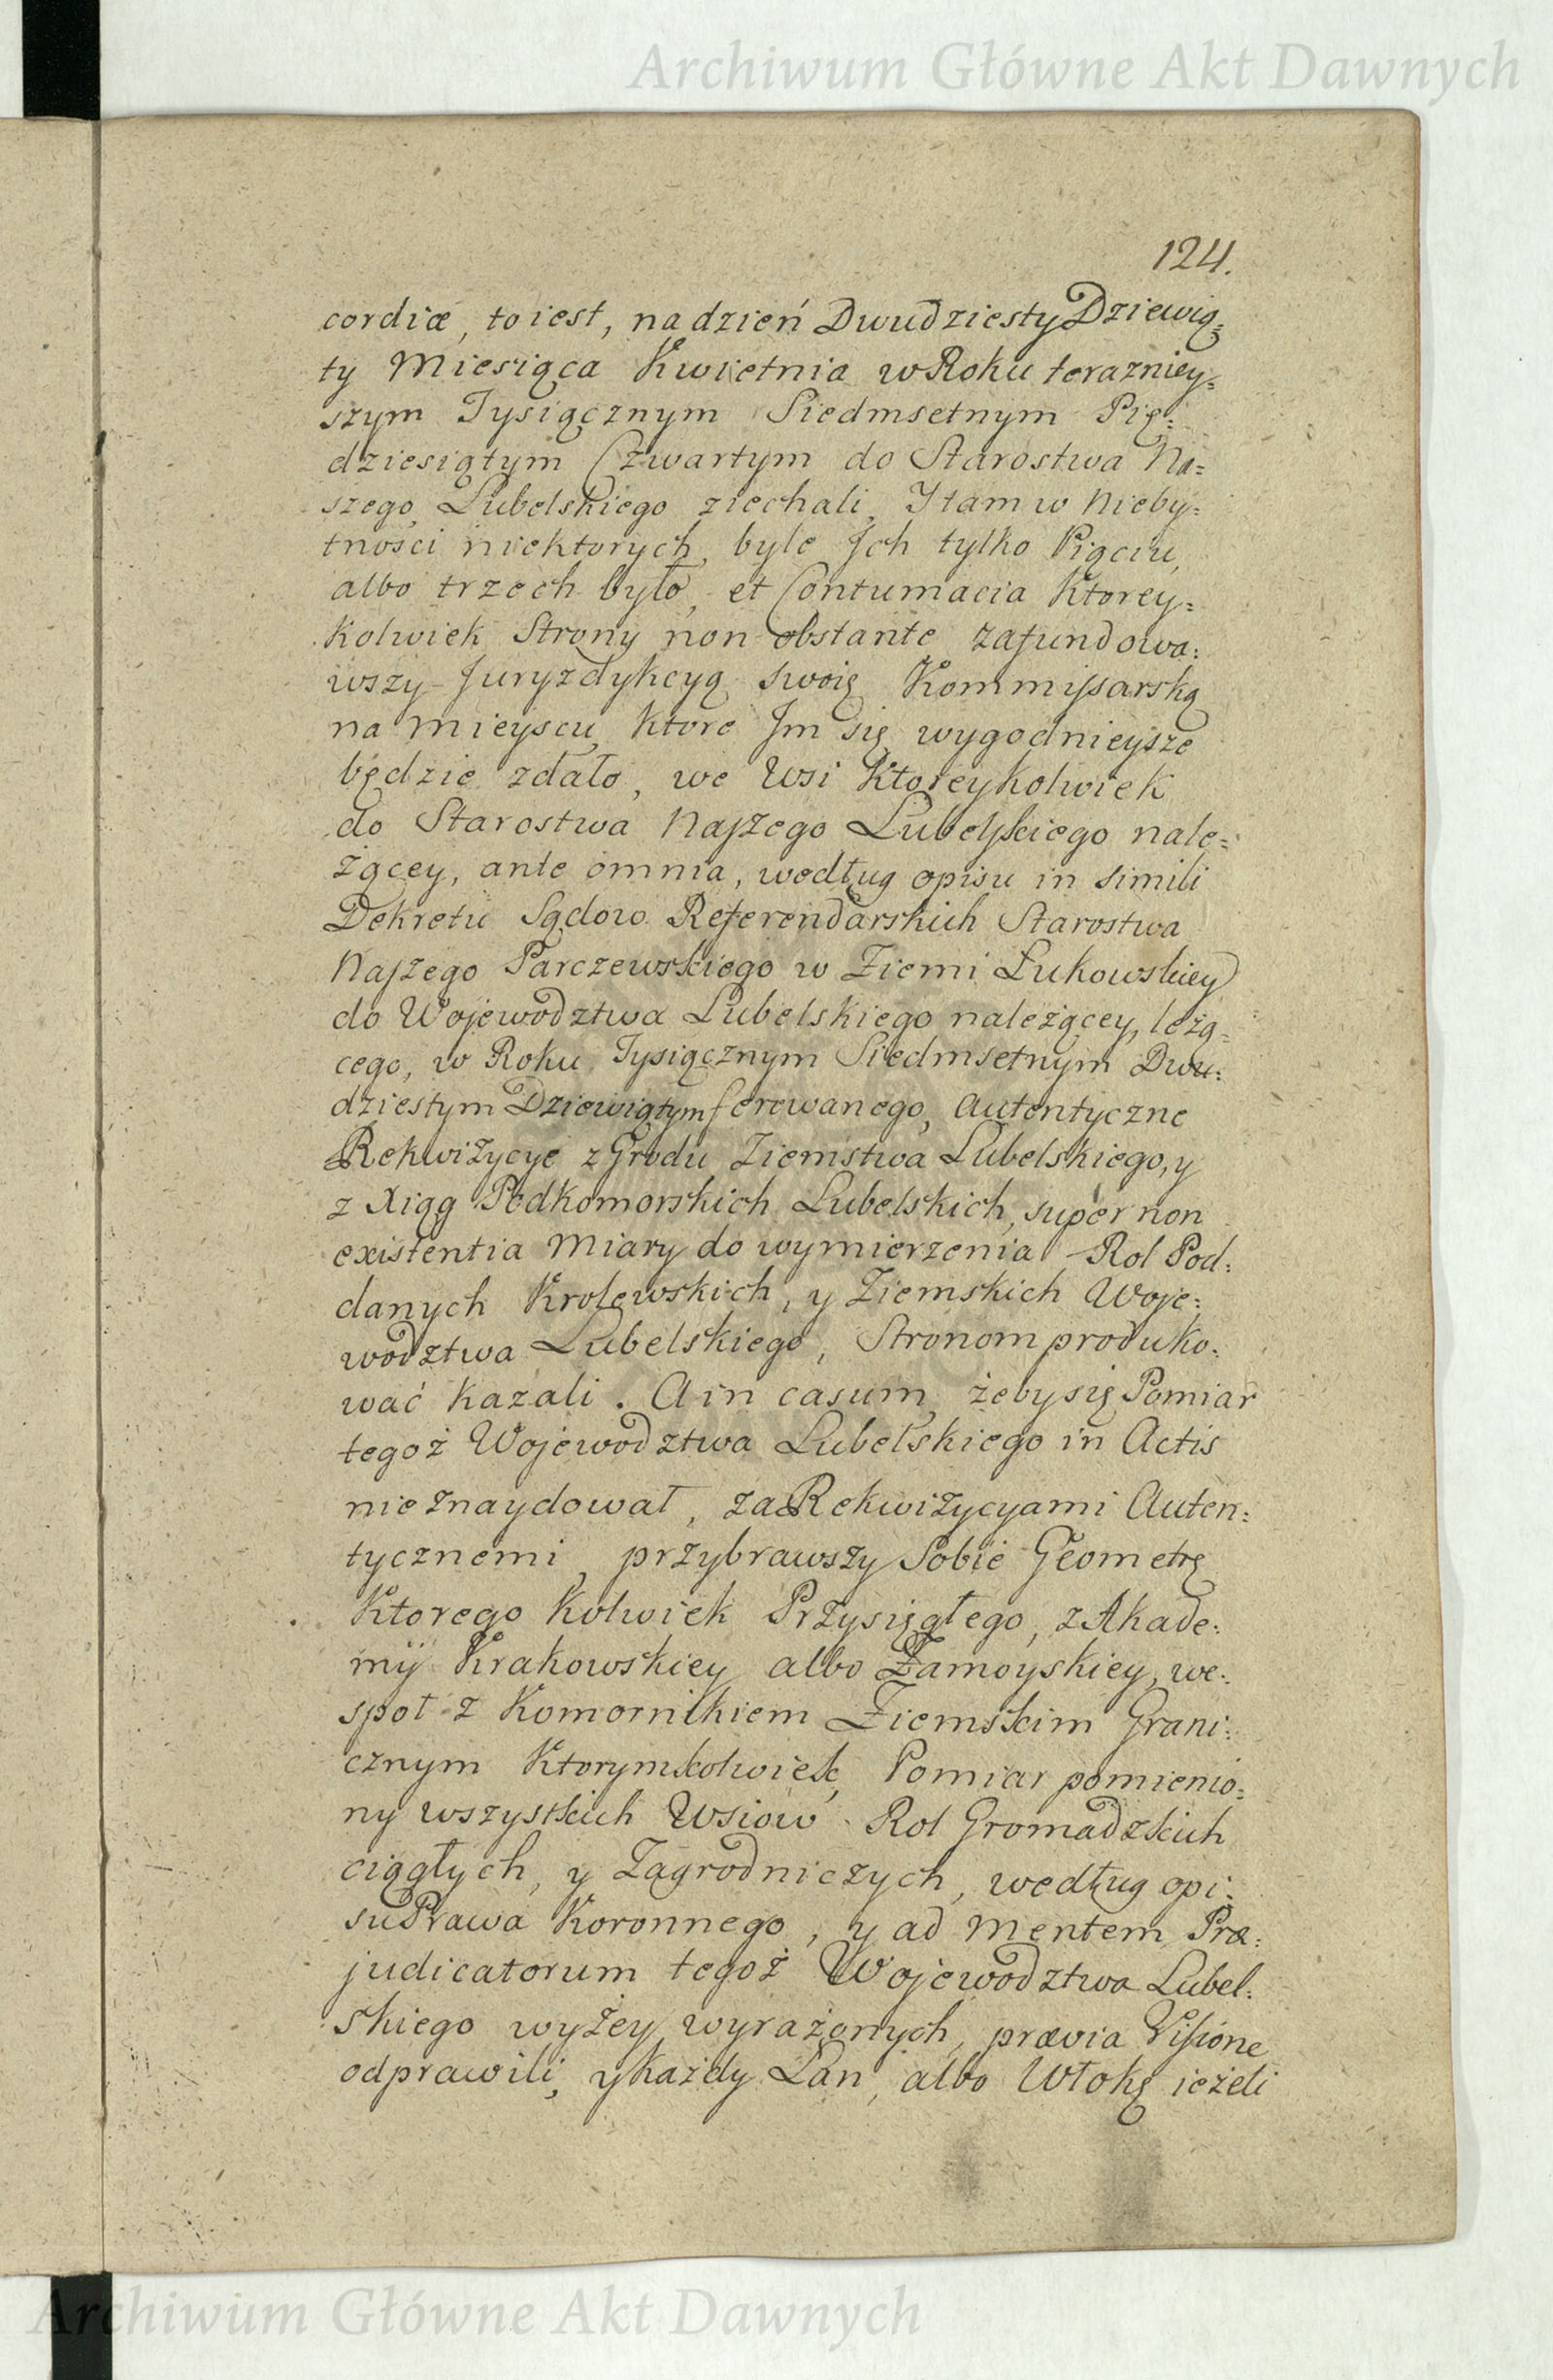 Archiwum Główne Akt Dawnych
124.
cordiæ, to iest, na dzień Dwudziesty Dziewią=
ty Miesiąca Kwietnia w Roku terazniey=
szym Tysiącznym Siedmsetnym Pię=
dziesiątym Czwartym do Starostwa Na=
szego Lubelskiego ziechali, Y tam w Nieby=
tności niektorych, byle Jch tylko Pięciu,
albo trzech było, et Contumacia Ktorey=
kolwiek Strony non obstante zafundowa=
wszy Juryzdykcyą swoię Kommissarską
na Mieyscu, Ktore Jm się wygodnieysze
będzie zdało, we Wsi Ktoreykolwiek
do Starostwa Naszego Lubelskiego nale=
żącey, ante omnia, według opisu in simili
Dekretu Sądow Referendarskich Starostwa
Naszego Parczewskiego w Ziemi Łukowskiey
do Wojewodztwa Lubelskiego należącey, leżą=
cego, w Roku Tysiącznym Siedmsetnym Dwu=
dziestym Dziewiątym ferowanego, Autentyczne
Rekwizycye z Grodu Ziemstwa Lubelskiego, y
z Xiąg Podkomorskich Lubelskich, super non
existentia Miary do wymierzenia Rol Pod=
danych Krolewskich, y Ziemskich Woje=
wodztwa Lubelskiego, Stronom produko=
wać kazali. A in casum, żeby się Pomiar
tegoż Wojewodztwa Lubelskiego in Actis
nie znaydował, za Rekwizycyami Auten=
tycznemi, przybrawszy Sobie Geometrę
Ktorego kolwiek Przysięgłego, z Akade=
mÿ Krakowskiey albo Zamoyskiey, we=
społ z Komornikiem Ziemskim Grani=
cznym Ktorymkolwiek, Pomiar pomienio=
ny wszystkich Wsiow Rol Gromadzkich
ciągłych, y Zagrodniczych, według opi=
su Prawa Koronnego, y ad mentem Præ=
judicatorum tegoż Wojewodztwa Lubel=
skiego wyżey wyrażonych, prævia Visione
odprawili, y każdy Łan, albo Włokę ieżeli
Archiwum Główne Akt Dawnych